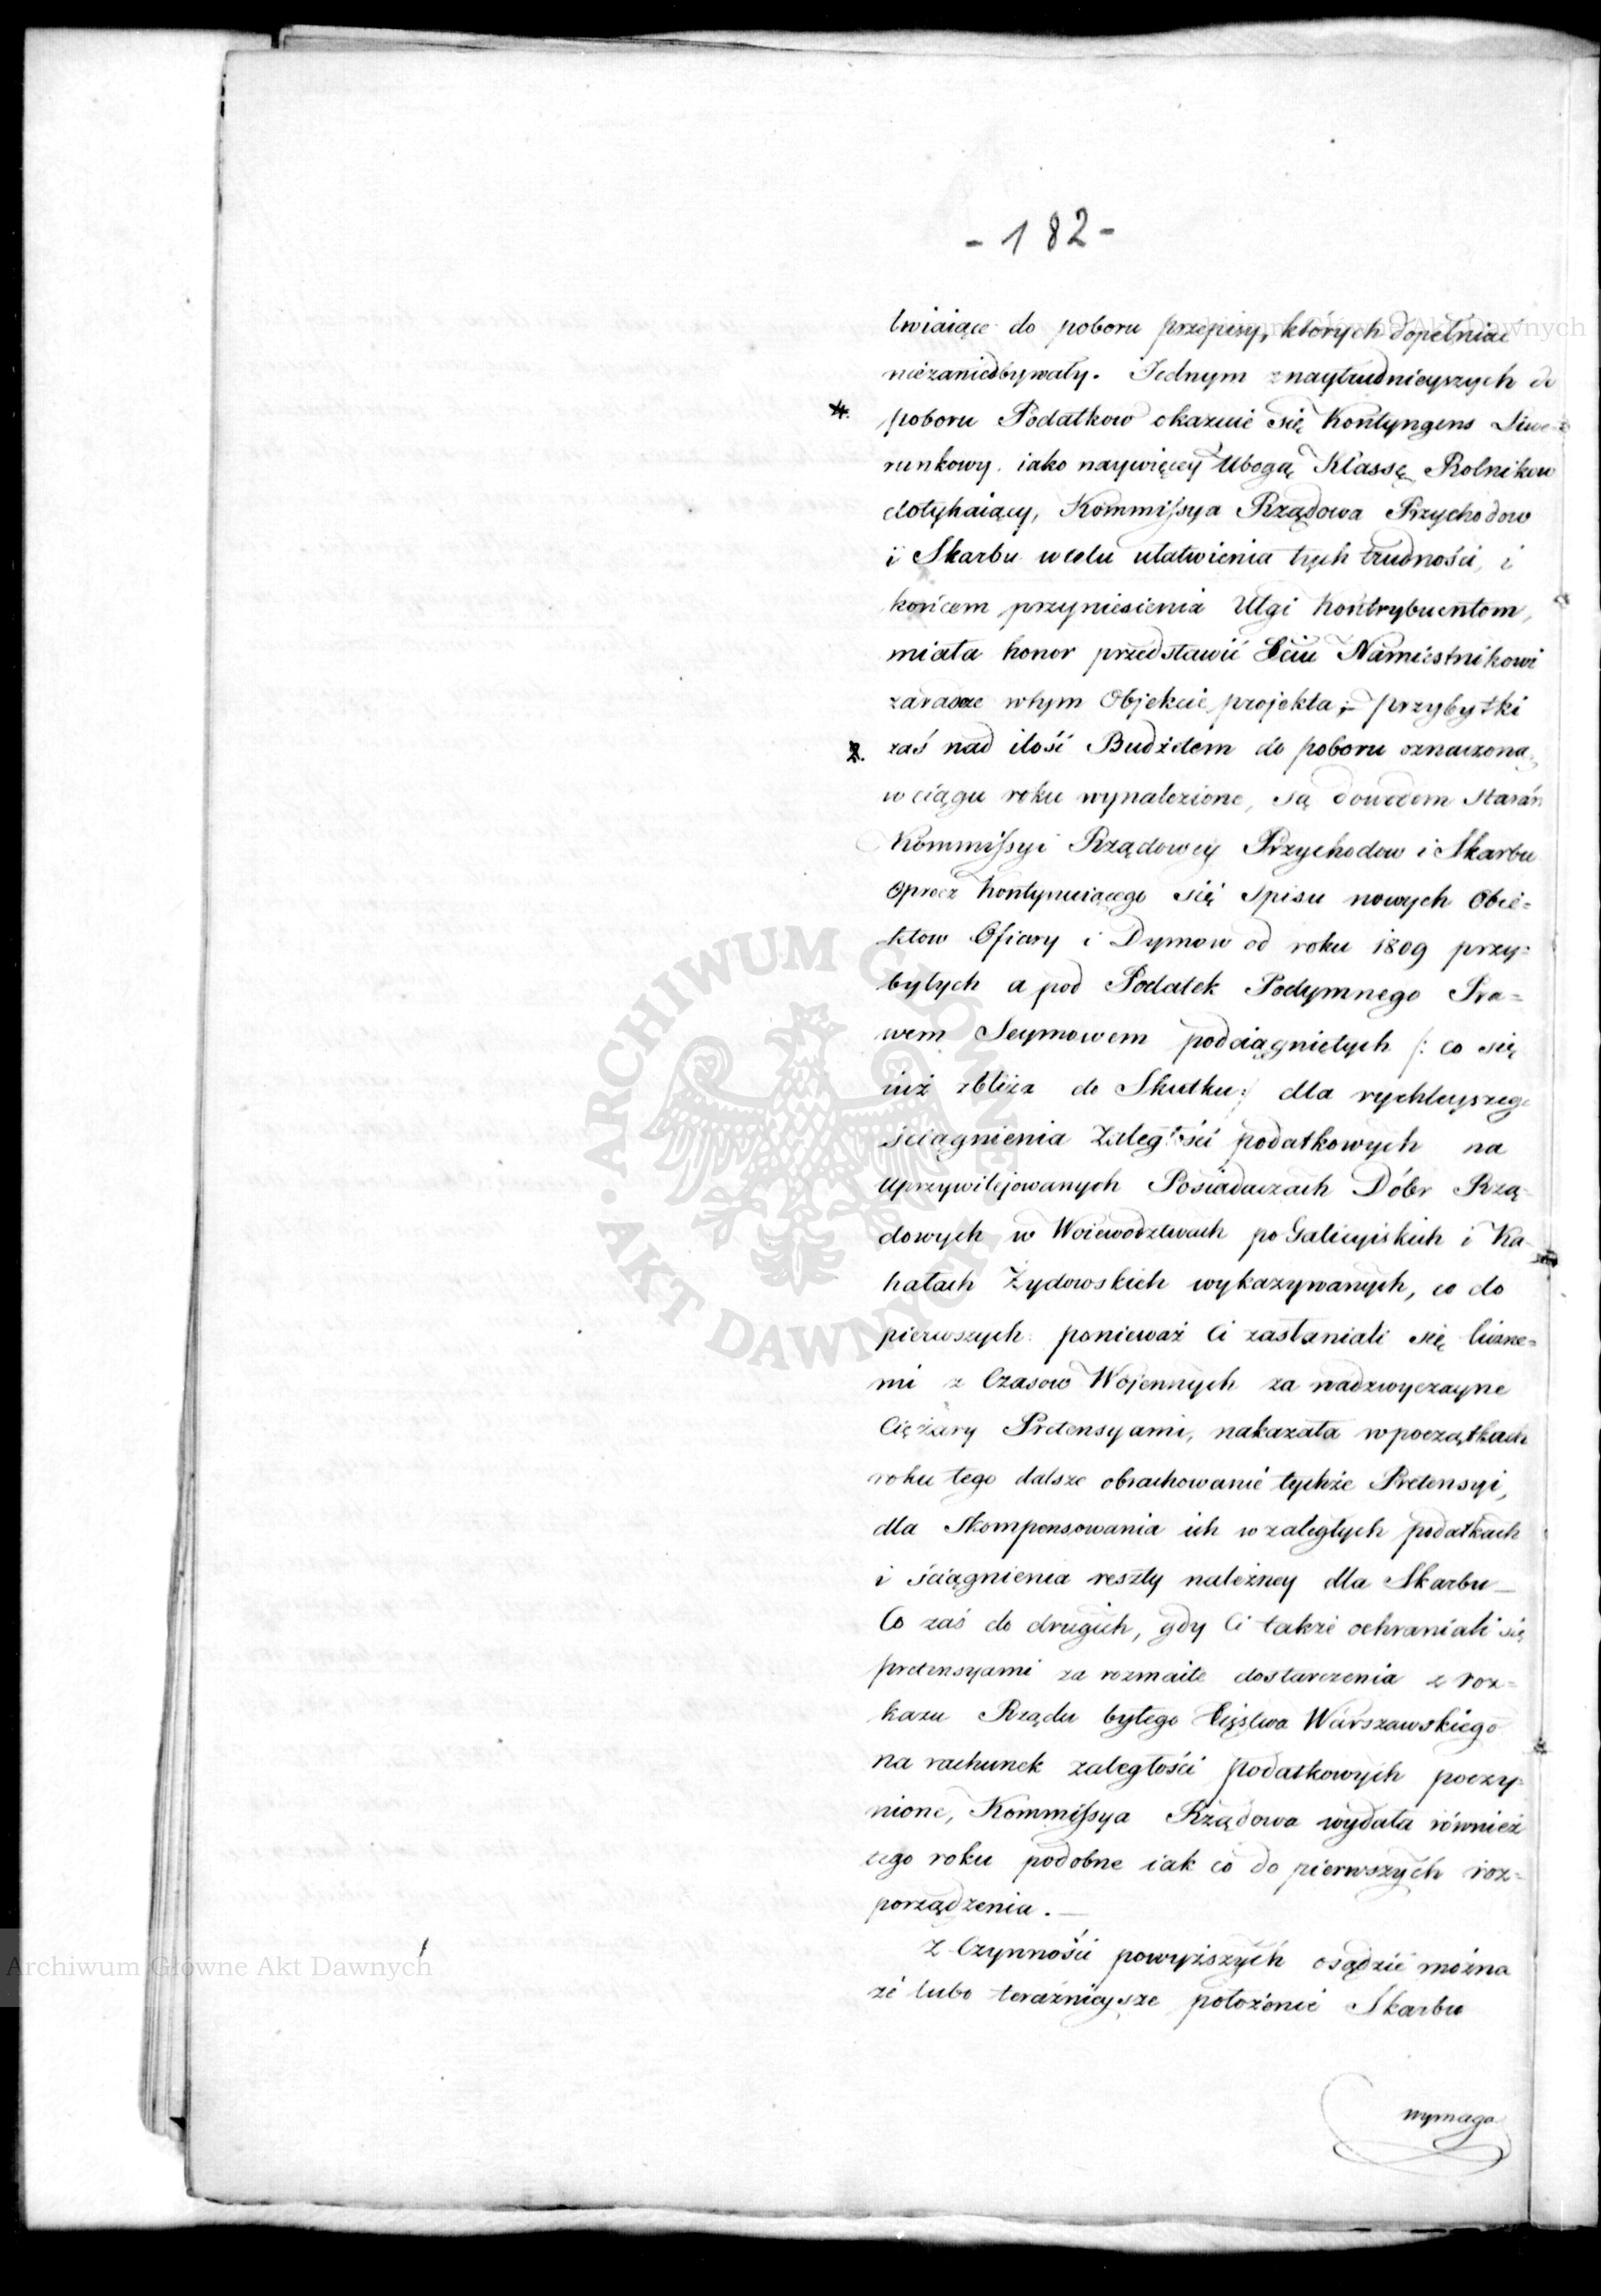 - 182 -
twiaiące do poboru przepisy, których dopełniać
niezaniedbywały. Jednym znaytrudnieyszych do
4. poboru Podatkow okazuie się Kontyngens Liwe-
runkowy. iako naywięcey Ubogą Klassę Rolnikow
dotykaiący, Kommissya Rządowa Przychodow
i Skarbu wcelu ułatwienia tych trudności, i
końcem przyniesienia Ulgi Kontrybuentom,
miała honor przedstawić Xciu Namiestnikowi
zaradcze wtym Objekcie projekta; – przybytki
2. zaś nad ilość Budżetem do poboru oznaczoną,
w ciągu roku wynalezione, są dowodem starań
Kommissyi Rządowey Przychodow i Skarbu
Oprocz kontynuiącego się spisu nowych Obie=
ktow Ofiary i Dymow od roku 1809 przy=
byłych a pod Podatek Podymnego Pra=
wem Seymowem podciągnietych /: co się
iuż zbliża do Skutku :/ dla rychleyszego
ściągnienia Zaległości podatkowych na
Uprzywilejowanych Posiadaczach Dóbr Rzą-
dowych w Woiewodztwach po Galicyiskich i Ka-
hałach Żydowskich wykazywanych, co do
pierwszych ponieważ Ci zasłaniali się liczne=
mi z Czasow Wojennych za nadzwyczayne
Ciężary Pretensyami, nakazała wpoczątkach
roku tego dalsze obrachowanie tychże Pretensyi,
dla skompensowania ich w zaległych podatkach
i ściągnienia reszty należney dla Skarbu —
Co zaś do drugich, gdy Ci także ochraniali się
pretensyami za rozmaite dostarczenia z roz=
kazu Rządu byłego Xięstwa Warszawskiego
na rachunek zaległości podatkowych poczy=
nione, Kommissya Rządowa wydała również
tego roku podobne iak co do pierwszych roz=
porządzenia. —
Z Czynności powyższych osądzić można
że lubo teraźnieysze położenie Skarbu
wymaga
ARCHIWUM GŁÓWNE AKT DAWNYCH
Archiwum Główne Akt Dawnych
Archiwum Główne Akt Dawnych